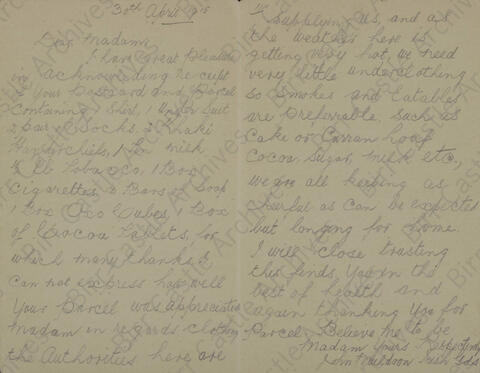 30th April 1915
Dear Madam,
I have great Pleasure
in acknowledging receipt
of your Postcard and Parcel
Containing 1 Shirt, 1 Under Suit
2 Pair Socks, 3 Khaki
Handkerchiefs, 1 Tin Milk
¼ lb Tobacco, 1 Box
Cigarettes, 2 Bars of Soap
1 Box Oxo Cubes, 1 Box
of Cocoa Tablets, for
which many thanks. I
can not express how well
Your Parcel was appreciated
Madam in regards clothing
the Authorities here are
Supplying us, and as
the weather here is
getting very hot, we need
very little underclothing
So Smokes and Eatables
are Preferrable, such as
Cake or Curran Loaf
Cocoa, Sugar, Milk etc,
we are all keeping as
cheerful as can be expected
but longing for home.
I will close trusting
this finds You in the
best of health and
again thanking You for
Parcel. Believe me to be
Madam Yours Respectfully
Muldoon Irish Gds
Birr Castle Archives